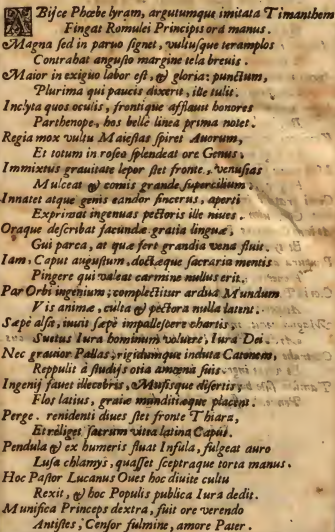 ABijce Phœbe lyram, argutumque imitata Timanthem
Fingat Romulei Principis ora manus.
Magna sed in paruo signet, vultusque teramplos
Contrahat angusto margine tela breuis.
Maior in exiguo labor est, & gloria: punctum,
Plurima qui paucis dixerit, ille tulit.
Inclyta quos oculis, frontique afflaut honores
Parthenope, hos bellè linea prima notet.
Regia mox vultu Maiestas spiret Auorum,
Et totum in roseo splendeat ore Genus.
Immixtus grauitate lepor stet fronte, venustas
Mulceat & comis grande supercilium.
Innatet atque genis candor sincerus, aperti
Exprimat ingenuas pectoris ille niues.
Oraque describat facundæ gratia linguæ,
Gui parca, at quæ fert grandia vena fluit.
Iam, Caput augustum, doctæque sacraria mentis
Pingere qui valeat carmine nullus erit.
Par Orbi ingenium; complectitur ardua Mundum
Vis animæ, culta & pectora nulla latent.
Sæpè alsit, iuuit sæpè impallescere chartis,
Suetus Iura hominum voluere, Iura Dei.
Nec grauior Pallas, rigidumque induta Catonem,
Reppulit à studijs otia amœna suis.
Ingenij fauet illecebris, Musisque disertis,
Flos latius, graiæ munditiæque placent.
Perge. renidenti diues stet fronte Thiara,
Et religet sacrum vitea latina Caput.
Pendula & ex humeris fluat Infula, fulgeat auro
Lusa chlamys, quasset sceptraque torta manus.
Hoc Pastor Lucanus Oues hoc diuite cultu
Rexit, & hoc Populis publica Iura dedit.
Munifica Princeps dextra, fuit ore verendo
Antistes, Censor fulmine, amore Pater.